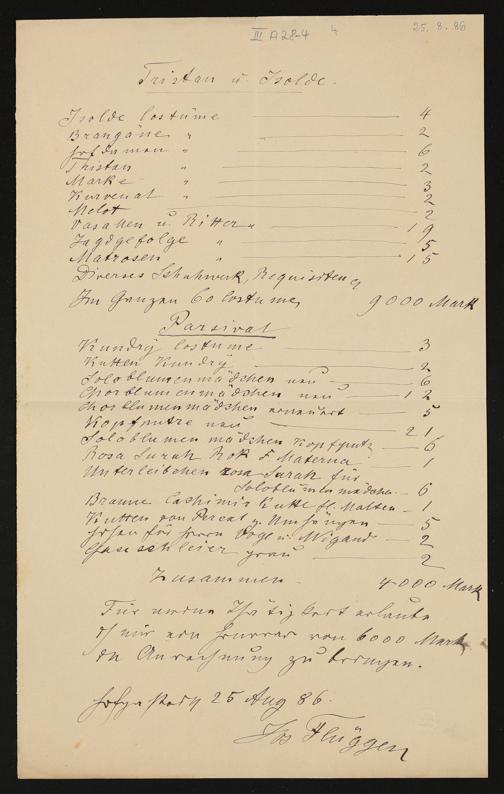 III A 28-4 4 25.8.86
Tristan u. Isolde.
Isolde Costüme 4
Brangäne " 2
Hofdamen " 6
Tristan " 2
Marke " 3
Kurvenal " 2
Melot 2
Vasallen u. Ritter " 19
Jagdgefolge " 5
Matrosen " 15
Diverses Schuhwerk, Requisiten
Im Ganzen 60 Costüme, 9000 Mark
Parsival
Kundry Costüme 3
Kutten Kundry 2
Soloblumenmädchen neu 6
Chorblumenmädchen neu 12
Chorblumenmädchen erneuert 5
Kopfputze neu 21
Soloblumenmädchen Kopfputz 6
Rosa Surah Rok F. Materna 1
Unterleibchen rosa Surah für
Soloblumenmädchen 6
Braune Cashimir Kutte Malten 1
Kutten von 5
Hosen für Herrn Vogl u. Wigand 2
Gaseschleier grau 2
Zusammen 4000 Mark
Für meine Thätigkeit erlaube
ich mir ein Honorar von 6000 Mark
in Anrechnung zu bringen.
25 Aug 86.
Jos Flüggen